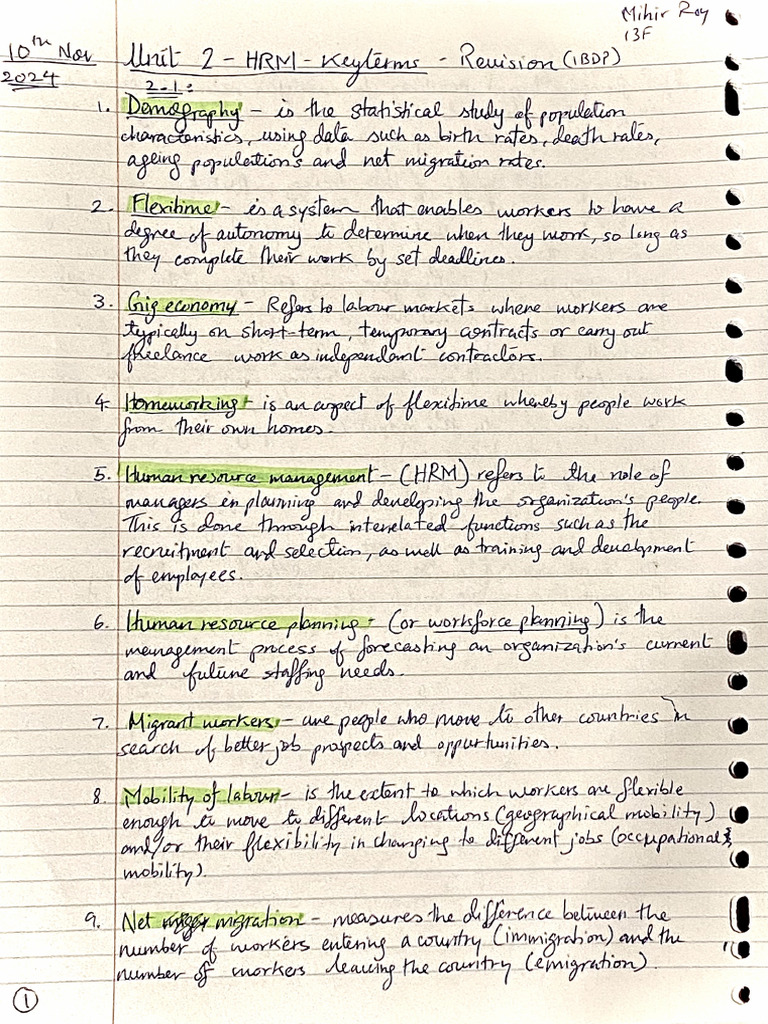 Mihir Roy
13F
10th Nov
2024
Unit 2 - HRM - Keyterms - Revision (IBDP)
2.1:
1. Demography - is the statistical study of population
characteristics, using data such as birth rates, death rates,
ageing populations and net migration rates.
2. Flexitime - is a system that enables workers to have a
degree of autonomy to determine when they work, so long as
they complete their work by set deadlines.
3. Gig economy - Refers to labour markets where workers are
typically on short-term, temporary contracts or carry out
freelance work as independant contractors.
4. Homeworking - is an aspect of flexitime whereby people work
from their own homes.
5. Human resource management - (HRM) refers to the role of
managers in planning and developing the organization's people.
This is done through interelated functions such as the
recruitment and selection, as well as training and development
of employees.
6. Human resource planning - (or workforce planning) is the
management process of forecasting an organization's current
and future staffing needs.
7. Migrant workers - are people who move to other countries in
search of better job prospects and opportunities.
8. Mobility of labour - is the extent to which workers are flexible
enough to move to different locations (geographical mobility)
and/or their flexibility in changing to different jobs (occupational
mobility).
9. Net migration - measures the difference between the
number of workers entering a country (immigration) and the
number of workers leaving the country (emigration).
1